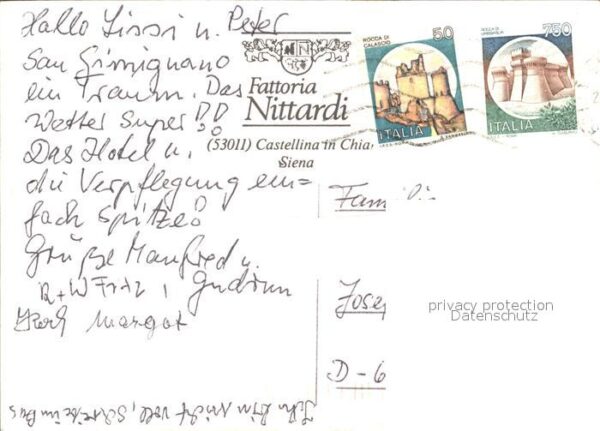 Hallo Sissi u. Peter
San Gimignano
ein Traum. Das
Wetter Super!!
Das Hotel u.
die Verpflegung ein=
fach Spitze!
Grüße Manfred u.
R+W Fritz, Gudrun
Margot
Ich bin nicht voll, schreibe im Bus
Fattoria
Nittardi
(53011) Castellina in Chia
Siena
50
ROCCA DI
CALASCIO
ITALIA
750
ROCCA DI
ITALIA
Fam
Josef
D-6
privacy protection
Datenschutz